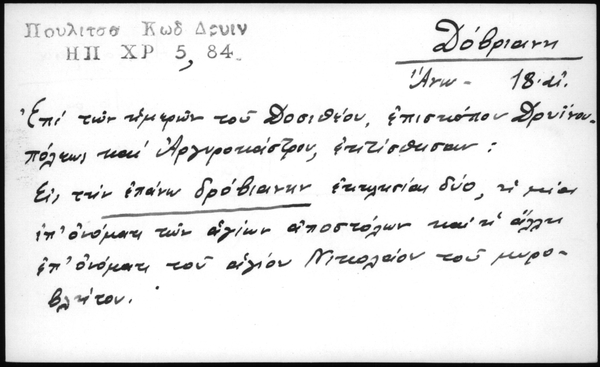 Πουλιτσα Κωδ Δρυιν
ΗΠ ΧΡ 5, 84.
Δόβριανη
Ἄνω - 18. αἰ.
Ἐπί τῶν ἡμερῶν τοῦ Δοσιθέου, ἐπισκόπου Δρυϊνου-
πόλεως καί Ἀργυροκάστρου, ἐκτίσθησαν :
Εἰς τήν ἐπάνω δρόβιανην ἐκκλησίαι δύο, ἡ μία
ἐπ' ὀνόματι τῶν ἁγίων ἀποστόλων καί ἡ ἄλλη
ἐπ' ὀνόματι τοῦ ἁγίου Νικολαίου τοῦ μυρο-
βλήτου.